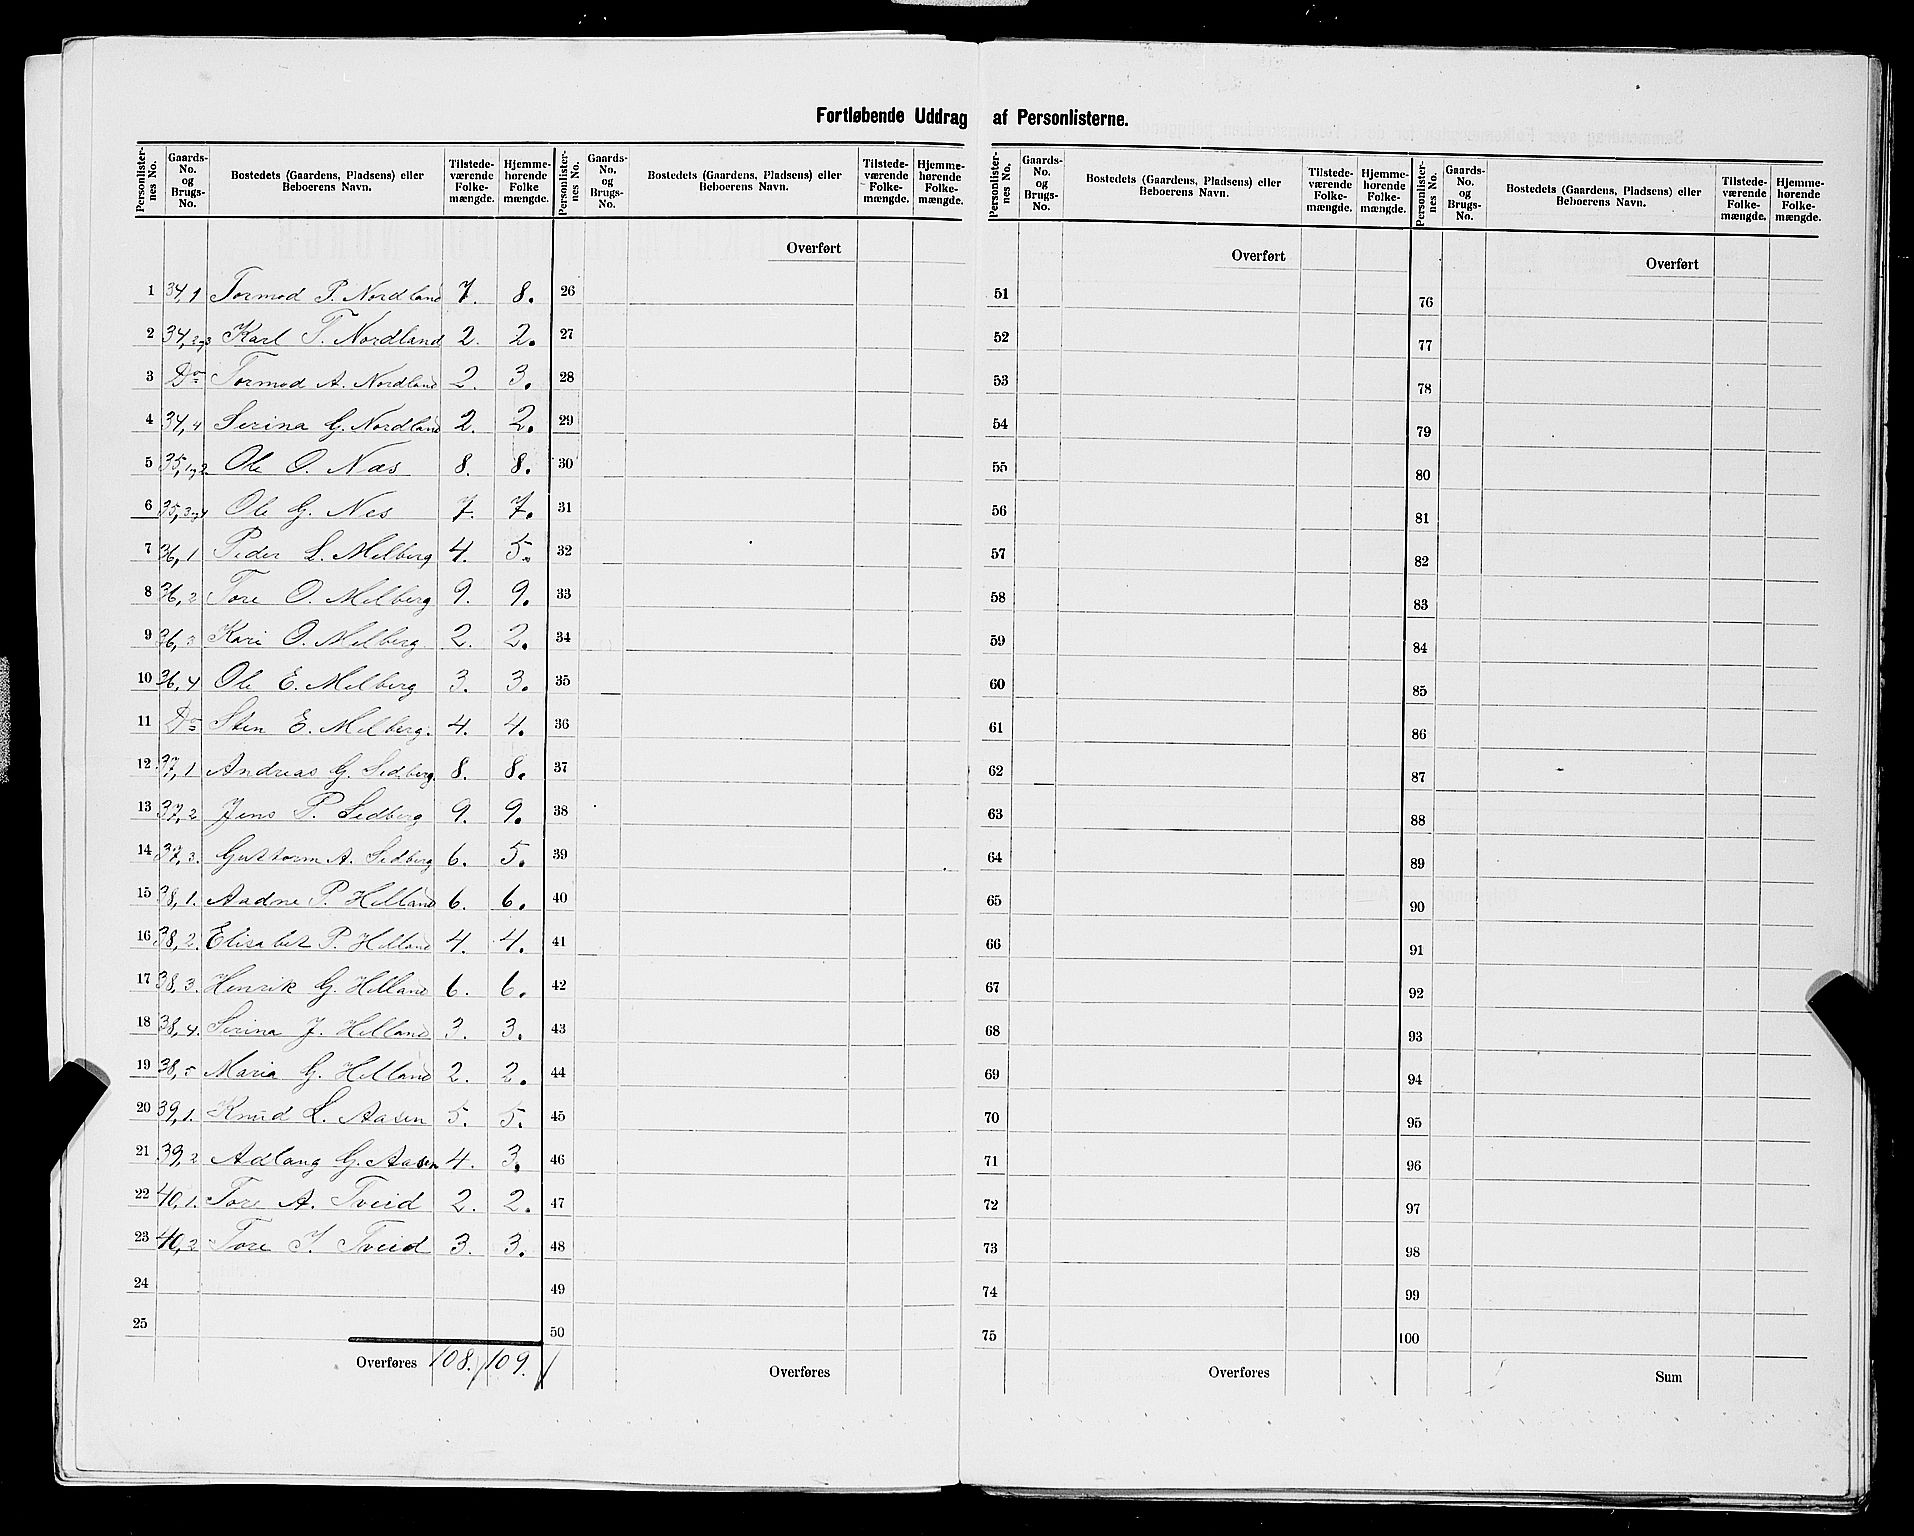 Fortløbende Uddrag af Personlisterne.
Personlister-nes No. | Gaards-No. og Brugs-No. | Bostedets (Gaardens, Pladsens) eller Beboerens Navn. | Tilstede-værende Folke-mængde. | Hjemme-hørende Folke mængde.
Personlister-nes No. | Gaards-No. og Brugs-No. | Bostedets (Gaardens, Pladsens) eller Beboerens Navn. | Tilstede-værende Folke-mængde. | Hjemme-hørende Folke-mængde.
Personlister-nes No. | Gaards-No. og Brugs-No. | Bostedets (Gaardens, Pladsens) eller Beboerens Navn. | Tilstede-værende Folke-mængde. | Hjemme-hørende Folke-mængde.
Personlister-nes No. | Gaards-No. og Brugs-No. | Bostedets (Gaardens, Pladsens) eller Beboerens Navn. | Tilstede-værende Folke-mængde. | Hjemme-hørende Folke-mængde.
1 34,1 Tormod P. Nordland 7. 8.
2 34,2,3 Karl T. Nordland 2. 2.
3 Do Tormod A. Nordland 2. 3.
4 34,4 Serina G. Nordland 2. 2.
5 35,1,2 Ole O. Nes 8. 8.
6 35,3,4 Ole G. Nes 7. 7.
7 36,1 Peder L. Melberg 4. 5.
8 36,2 Tore O. Melberg 9. 9.
9 36,3 Kari O. Melberg. 2. 2.
10 36,4 Ole E. Melberg 3. 3.
11 Do Sten E. Melberg. 4. 4.
12 37,1 Andreas G. Sedberg 8. 8.
13 37,2 Jens P. Sedberg 9. 9.
14 37,3. Guttorm A. Sedberg 6. 5.
15 38,1. Aadne P. Helland 6. 6.
16 38,2. Elisabet P. Helland 4. 4.
17 38,3. Henrik G. Helland 6. 6.
18 38,4. Serina J. Helland 3. 3.
19 38,5 Maria G. Helland 2. 2.
20 39,1. Knud L. Aasen 5. 5.
21 39,2 Adlang G. Aasen 4. 3.
22 40,1. Tore A. Tveid 2. 2.
23 40,2 Tore J. Tveid 3. 3.
24
25
Overføres 108. 109.
Overført
26
27
28
29
30
31
32
33
34
35
36
37
38
39
40
41
42
43
44
45
46
47
48
49
50
Overføres
Overført
51
52
53
54
55
56
57
58
59
60
61
62
63
64
65
66
67
68
69
70
71
72
73
74
75
Overføres
Overført
76
77
78
79
80
81
82
83
84
85
86
87
88
89
90
91
92
93
94
95
96
97
98
99
100
Sum